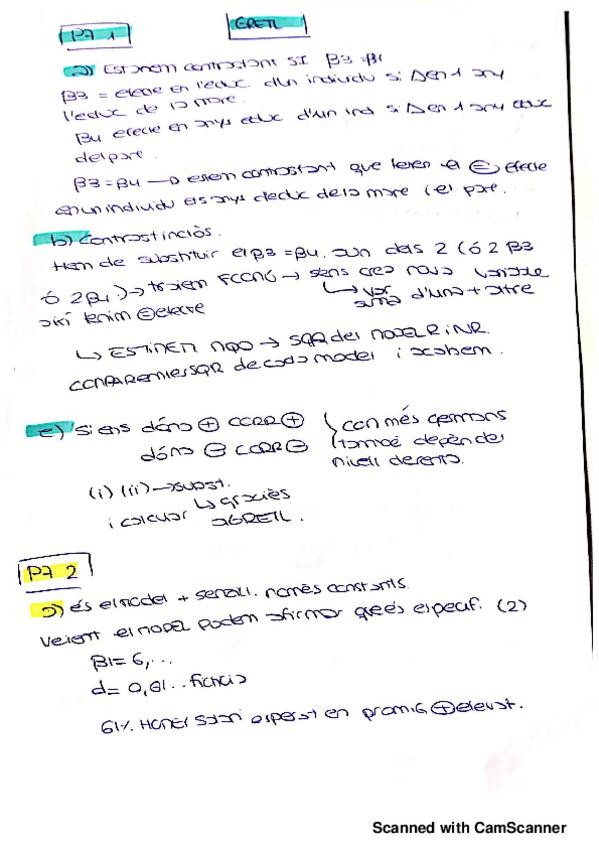 P7 1
GRETL
a) Estarem contrastant si β3 = β4
β3 = efecte en l'educ. d'un individu si Δ en 1 any
l'educ de la mare.
β4 efecte en anys educ d'un ind si Δ en 1 any educ
del pare.
β3 = β4 → estem contrastant que tenen el = efecte
en un individu els anys d'educ de la mare i el pare.
b) Contrast
Hem de substituir el β3 = β4. un dels 2 (ó 2 β3
ó 2β4) → traiem → sens crea nova variable
així tenim = efecte
↳ var suma d'una + altre
↳ ESTIMEM MQO → SQR del MODEL R i NR.
COMPAREM les SQR de cada model i acabem.
e) Si ens dóna ⊕ CORR ⊕
dóna ⊖ CORR ⊖
com més germans
també depèn del
nivell de renta.
(i) (ii) → subst.
i calcular ↳ gràcies
a GRETL.
P7 2
a) és el model + senzill. només constants.
Veient el model podem afirmar que és especif. (2)
β1 = 6,...
d = 0,61.. fictícia
61% Homes salari esperat en promig ⊕ elevat.
Scanned with CamScanner